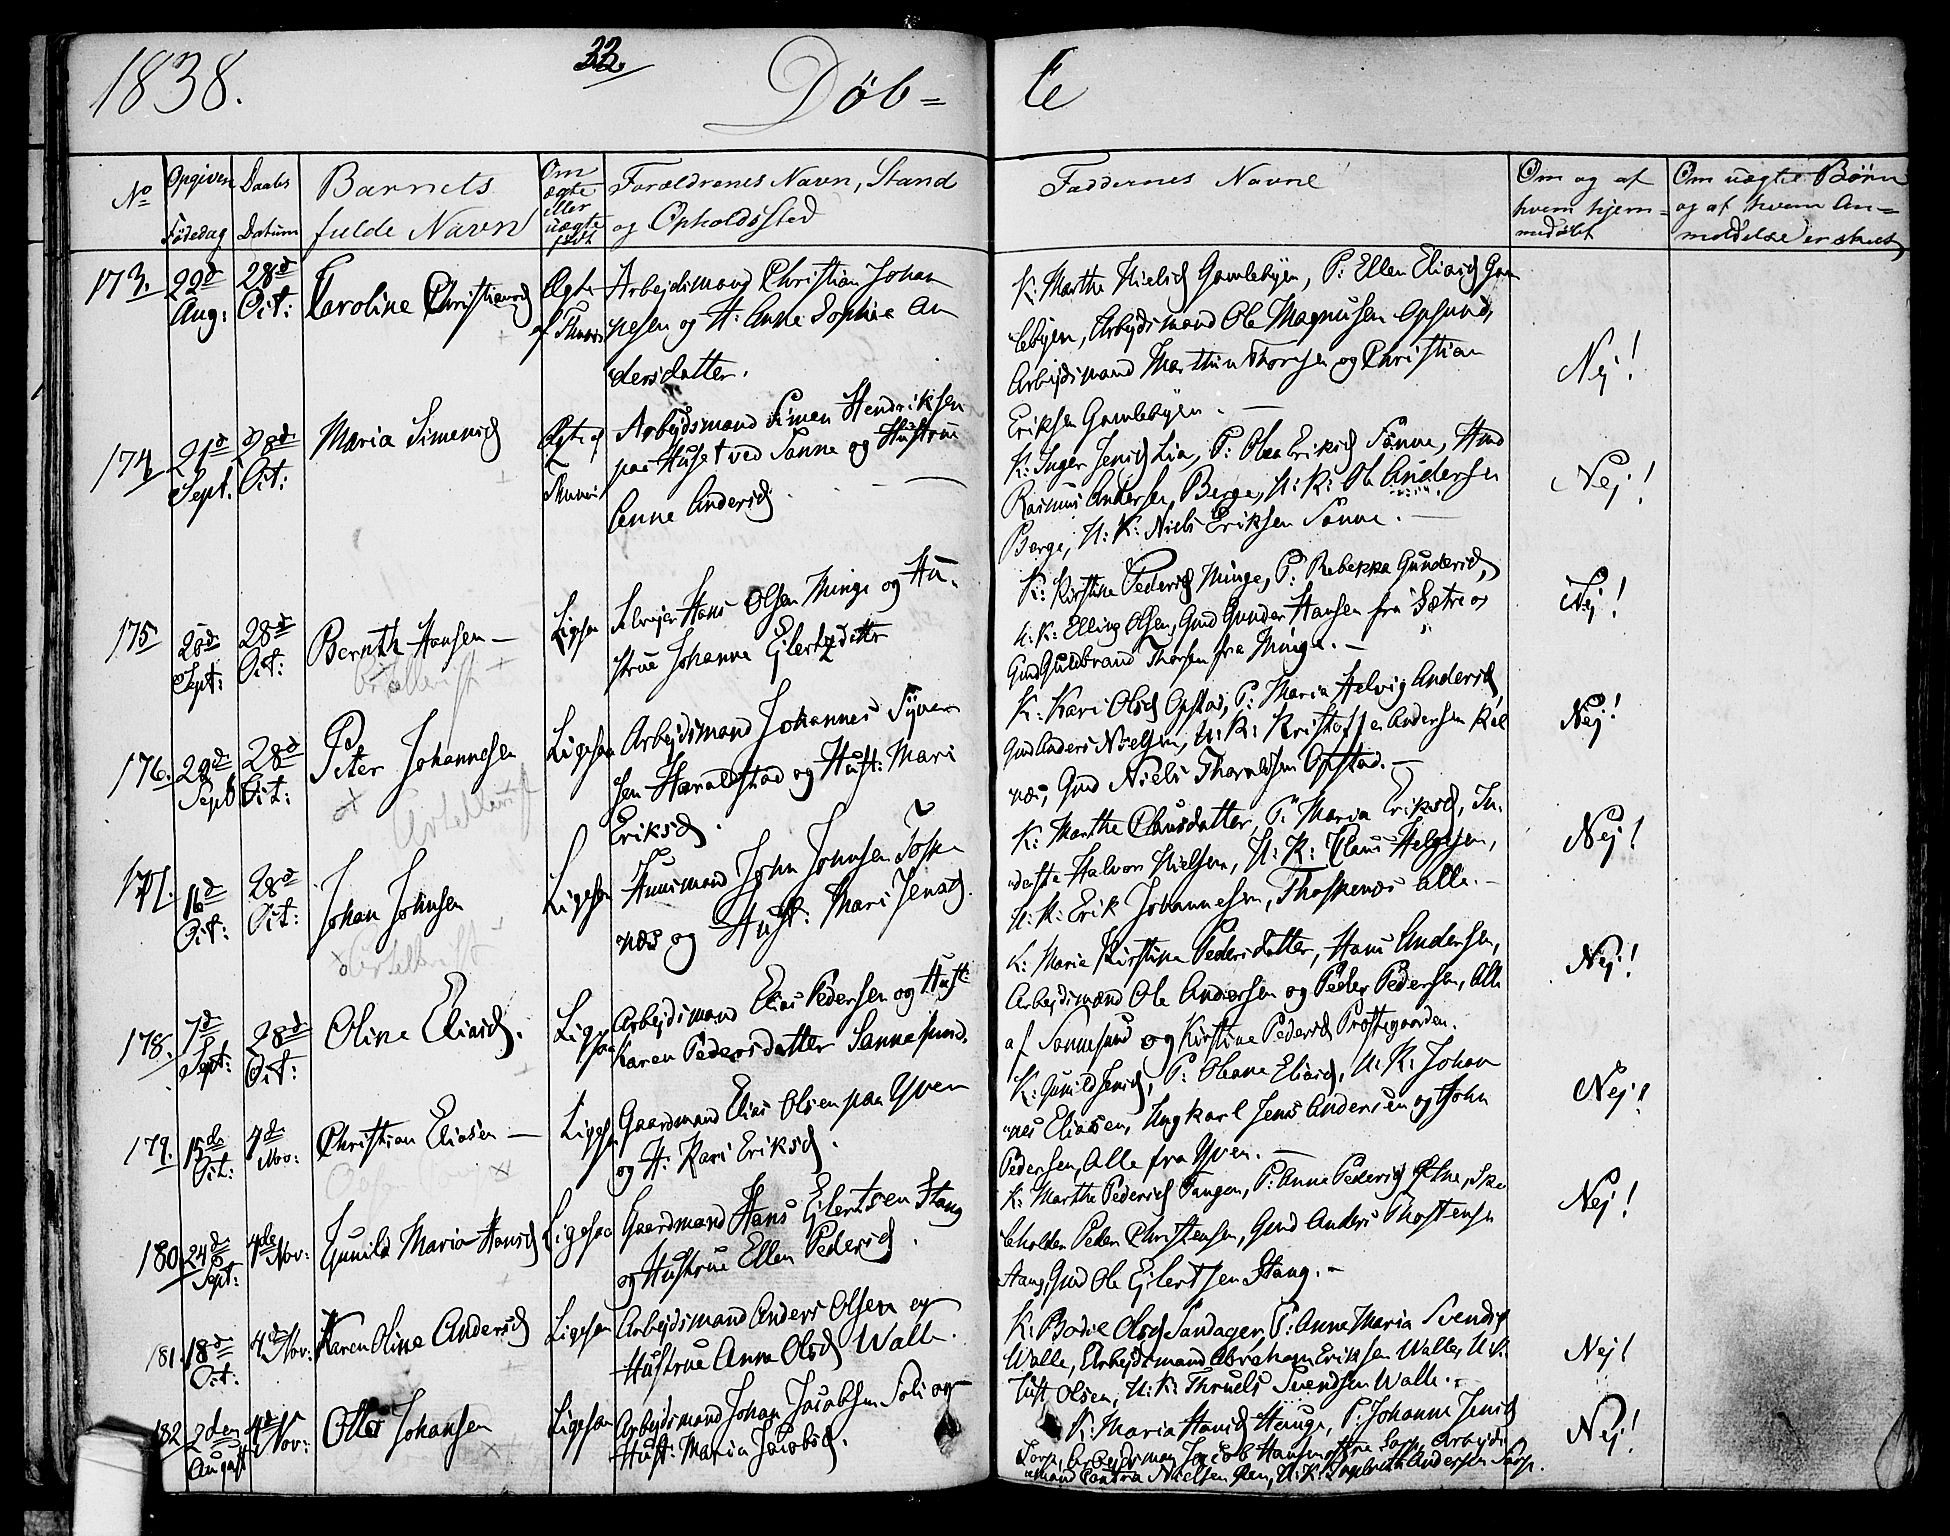 1838.
22.
Døb=
te
No
Opgiven Fødedag
Daabs Datum
Barnets fulde Navn
Om ægte eller uægte født
Forældrenes Navn, Stand og Opholdssted
Faddernes Navne
Om og af hvem hjem= medøbt
Om uægte Børn og af hvem An= meldelse er skeet
173.
22d Aug:
28d Oct:
Caroline Christiansd
Ægte af
Arbejdsmand Christian Johan
nesen og H: Anne Sophie An
dersdatter.
K: Marthe Nielsd Gamlebyen, P: Ellen Eliasd Gam
lebyen, Arbejdsmand Ole Magnusen Opsund,
Arbejdsmand Marthin Thorsen og Christian
Eriksen Gamlebyen. —
Nej!
174
21d Sept.
28d Oct:
Maria Simensd
Ægte af 2
Arbejdsmand Simen Hendriksen
paa Huset ved Sanne og Hustrue
Anne Andersd
K: Inger Jensd Lia, P: Olea Eriksd Sanne,
Rasmus Andersen Berge, U: K: Ole Andersen
Berge, U: K: Niels Eriksen Sanne. —
Nej!
175
28d Sept:
28d Oct:
Bernth Hansen —
Ligesaa
Hans Olsen Minge og Hu-
strue Johanne Ejlertzdatter
K: Kirstine Pedersd Minge, P: Rebekka Gundersd,
U: K: Elling Olsen, Gmd Gunder Hansen fra Sætre og
Gmd Guldbrand Thorsen fra Minge. —
Nej!
176.
29d Sept
28d Oct:
Peter Johannesen
Ligesaa
Arbejdsmand Johannes Syver
sen Haraldstad og Hust: Mari
Eriksd.
K: Kari Olsd Opstad, P: Maria Helvig Andersd,
Gmd Anders Nielsen, U: K: Kristoffer Andersen Kal
næs, Gmd Niels Thoresen Opstad. —
Nej!
177.
16d Oct:
28d Oct:
Johan Johnsen
Ligesaa
Huusmand John Johnsen Toske
næs og Hust: Mari Jensd.
K: Marthe Clausdatter, P: Maria Eriksd, In-
derste Halvor Nielsen, U: K: Claus Helgesen,
U: K: Erik Johannesen, Thoskenæs alle. —
Nej!
178.
7d Sept:
28d Oct:
Oline Eliasd.
Ligesaa
Arbejdsmand Elias Pedersen og Hust:
Karen Pedersdatter Sannesund.
K: Maria Kirstine Pedersdatter, Hans Andersen,
Arbejdsmænd Ole Andersen og Peder Pedersen, alle
af Sannesund og Kirstine Pedersd Prostegaarden.
Nej!
179.
15de Oct:
4de Nov:
Christian Eliasen —
Ligesaa
Gaardmand Elias Olsen paa Yven
og H: Kari Eriksd.
K: Gunild Jensd, P: Oleane Eliasd, U: K: Johan
nes Eliasen, Ungkarl Jens Andersen og John
Pedersen, Alle fra Yven. —
Nej!
180
24de Sept:
4de Nov:
Gunild Maria Hansd
Ligesaa
Gaardmand Hans Ejlertsen Stang
og Hustrue Ellen Pedersd.
K: Marthe Pedersd Tangen, P: Anne Pedersd
Peder Christensen, Gmd Anders Thostensen
Stang, Gmd Ole Ejlertsen Stang. —
Nej!
181.
18d Oct:
4d Nov:
Karen Oline Andersd
Ligesaa
Arbejdsmand Anders Olsen og
Hustrue Anne Olsd Walle.
K: Bodil Olsd Sandager, P: Anne Maria Svendsd
Walle, Arbejdsmand Abraham Eriksen Walle, U: K:
Olsen, U: K: Thruels Svendsen Walle. —
Nej!
182
2den August
4d Nov:
Otto Johansen
Ligesaa
Arbejdsmand Johan Jacobsen Soli og
Hust: Maria Jacobsd.
K: Maria Hansd Hauge, P: Johanne Jensd
Sorp, Arbejdsman Jacob Hansen fra Sarp, Arbejds
mand Nielsen, U: K: Andersen Sarp.
Nej!